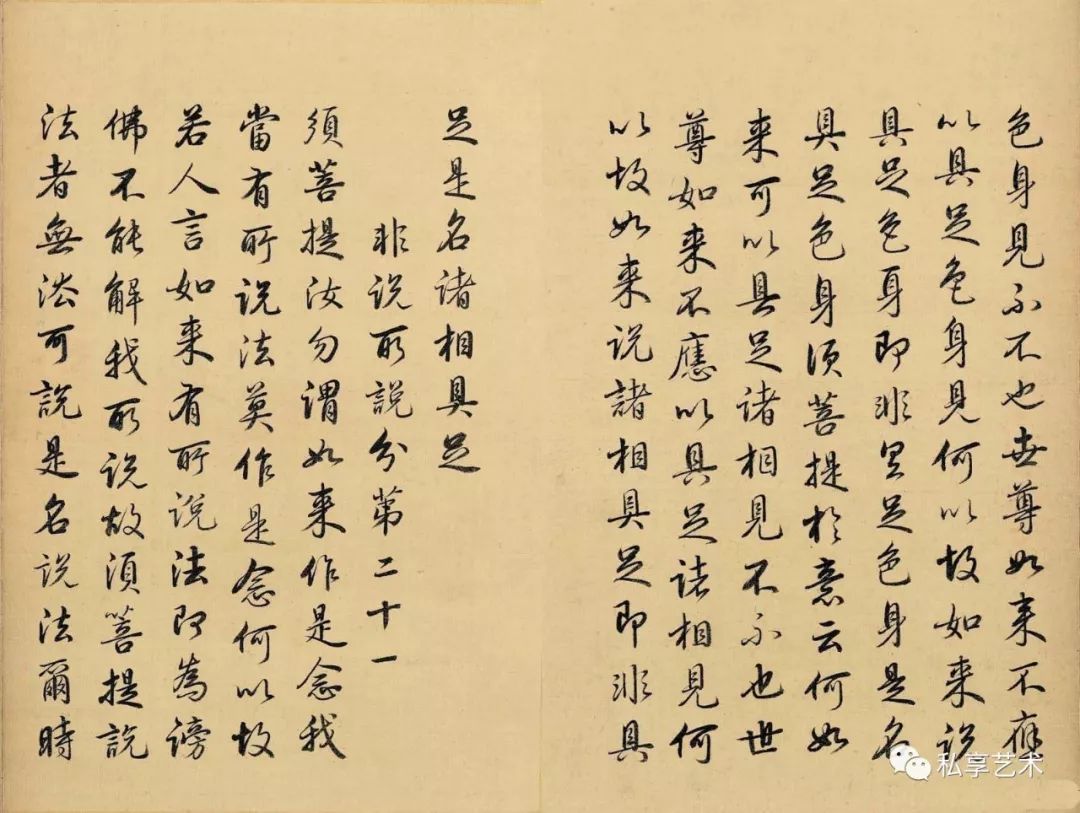 色身見不不也世尊如来不應
以具足色身見何以故如来说
具足色身即非具足色身是名
具足色身须菩提於意云何如
来可以具足诸相見不不也世
尊如来不應以具足诸相見何
以故如来说諸相具足即非具
足是名诸相具足
非说所說分第二十一
須菩提汝勿謂如来作是念我
當有所说法莫作是念何以故
若人言如来有所说法即為謗
佛不能解我所说故须菩提說
法者無法可說是名说法爾時
私享艺术